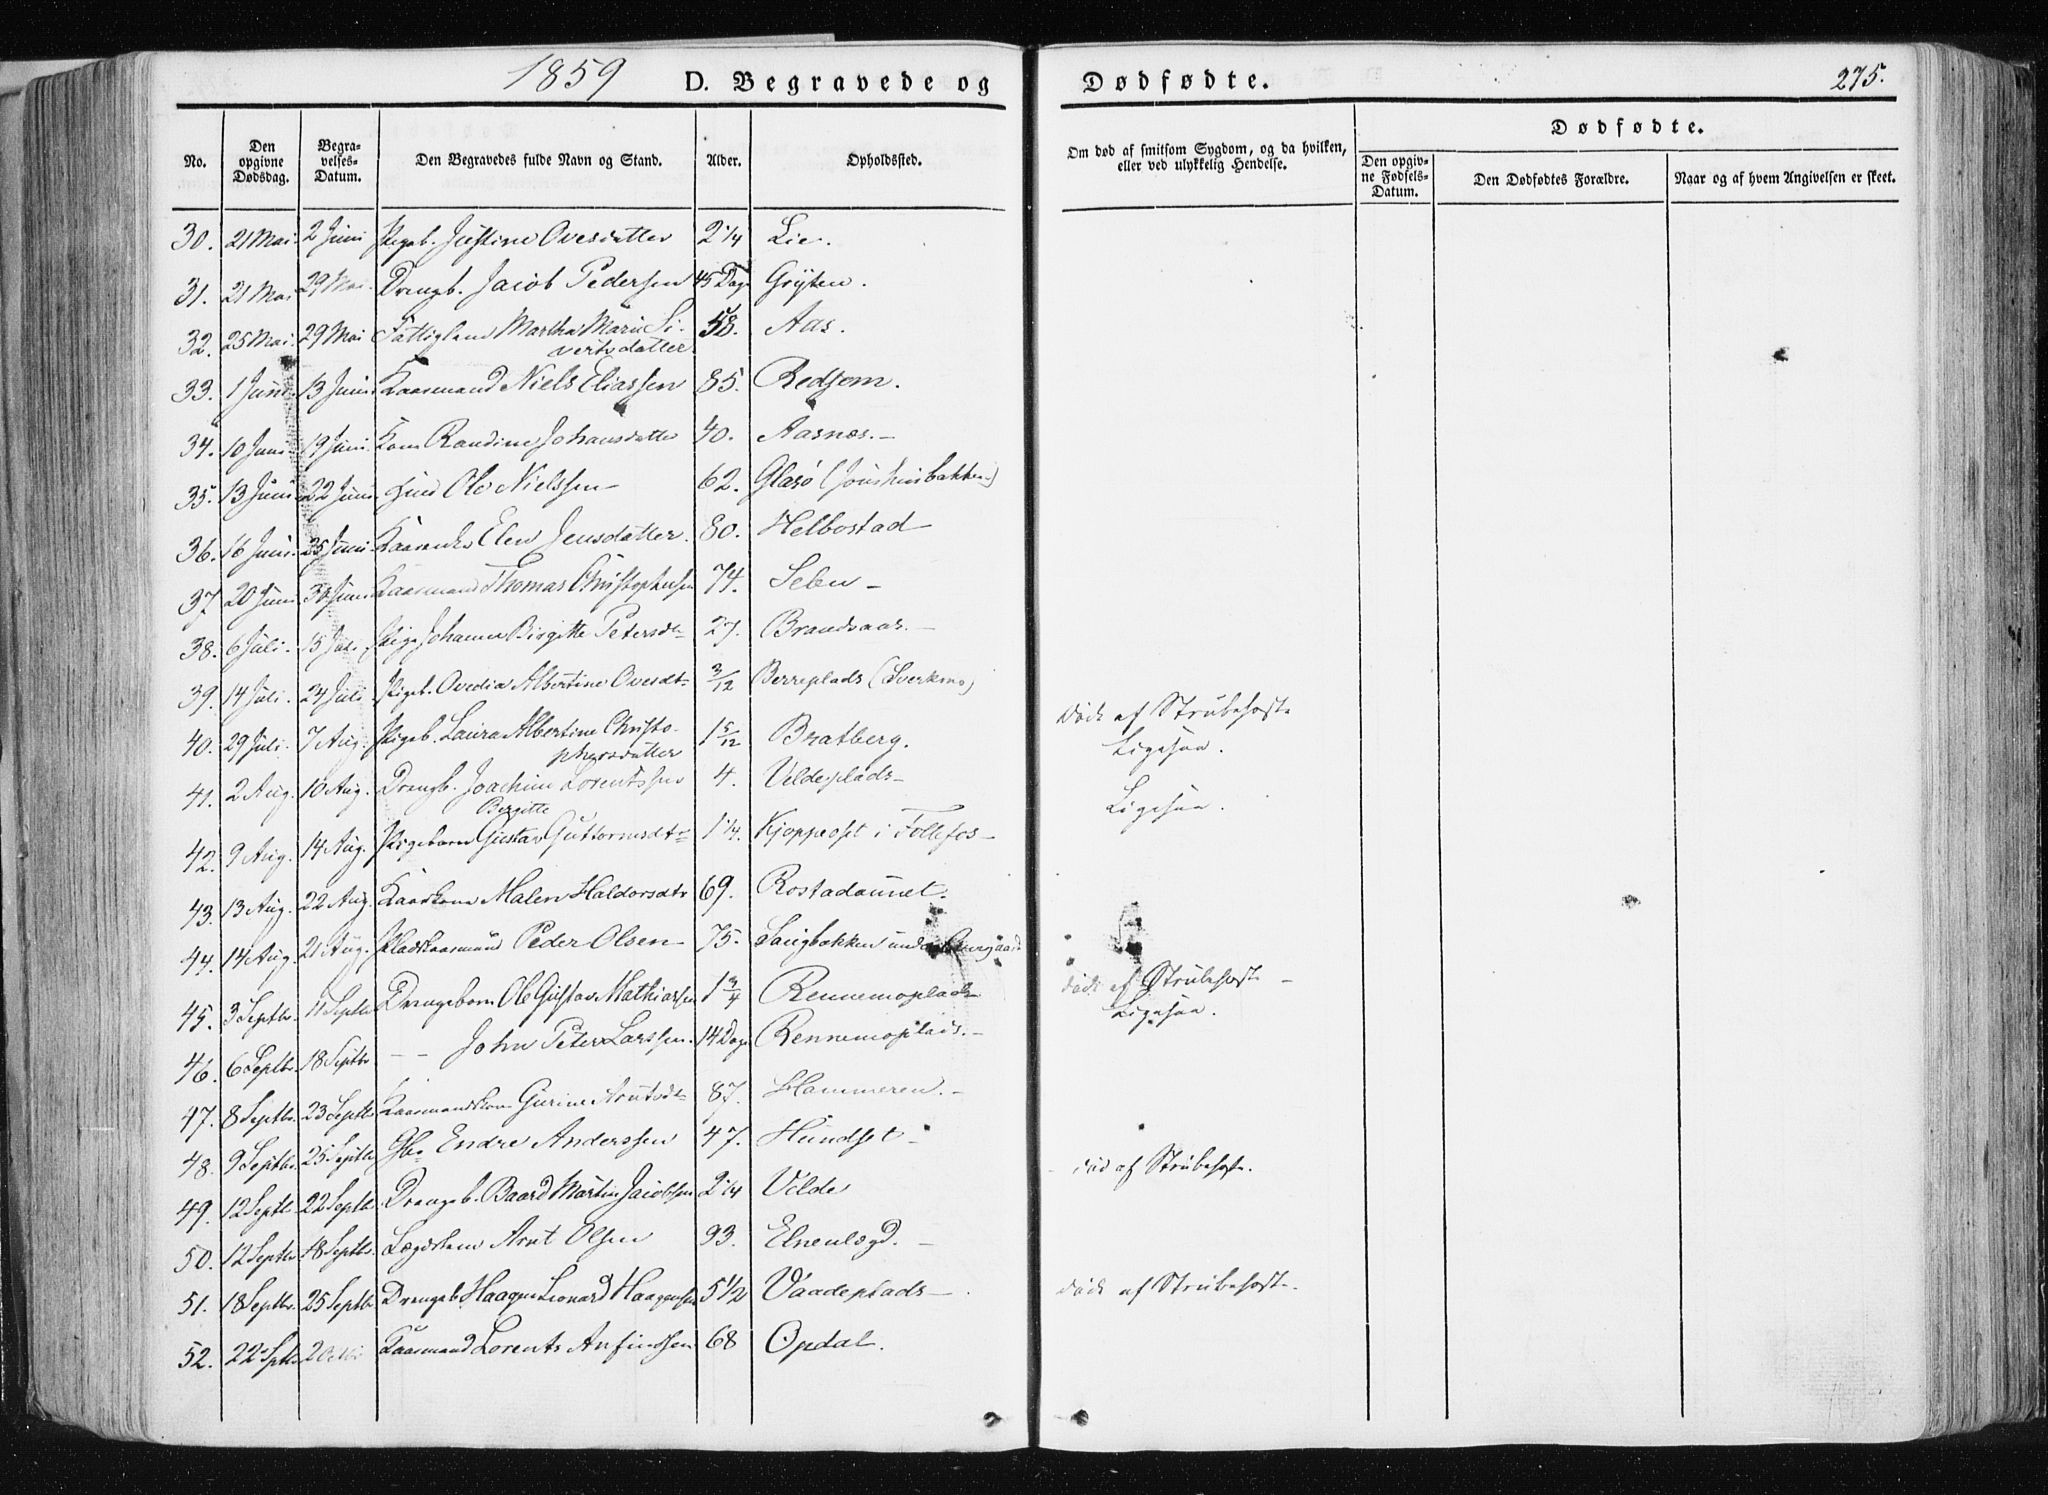 1859 D. Begravede og Dødfødte. 275.
No. Den opgivne Dødsdag. Begravelses-Datum. Den Begravedes fulde Navn og Stand. Alder. Opholdssted. Om død af smitsom Sygdom, og da hvilken, eller ved ulykkelig Hendelse. Dødfødte. Den opgivne Fødsels-Datum. Den Dødfødtes Forældre. Naar og af hvem Angivelsen er skeet.
30. 21 Mai 2 Juni Pigeb. Justine Ovesdatter 2 1/4 Lie.
31. 21 Mai 29 Mai Drengb. Jacob Pedersen 45 Dage Gryten.
32. 25 Mai 29 Mai Fattiglem Martha Marie Si-
vertsdatter 58. Aas.
33. 1 Juni 13 Juni Kaarmand Niels Eliassen 85. Redsem.
34. 10 Juni 19 Juni Kone Randine Johansdatter 40. Aasnæs.
35. 13 Juni 22 Juni Ole Nielssen 62. Glasø
36. 16 Juni 25 Juni Kaarenke Elen Jensdatter. 80. Helbostad
37 20 Juni 30 Juni Kaarmand Thomas Christophersen 74. Selen
38. 6 Juli 15 Juli Pige Johanna Birgitte Petersdt. 27. Brandsaas.
39. 14 Juli. 24 Juli Pigeb. Ovedia Albertine Ovesdt. 3/12 Berreplads (Sverkmo)
40. 29 Juli. 7 Aug. Pigeb. Laura Albertine Christo-
phersdatter 1 5/12 Bratberg. Død af Strubehoste
41. 2 Aug. 10 Aug. Drengb. Joachim Lorentssen 4. Veldeplads Ligesaa.
Birgitte
42. 9 Aug. 14 Aug. Pigebarn Gustav Guttormsdtr 1 1/4. Kjoppeoset i Follefos Ligesaa.
43. 13 Aug. 22 Aug. Kaarkone Malen Haldorsdtr 69. Rostadaunet.
44. 14 Aug. 21 Aug. Pladskaarmand Peder Olsen 75. under
45. 3 Septbr. 11 Septbr Drengebarn Ole Gustav Mathiassen 1 3/4 Rennemoplads død af Strubehoste
46. 6 Septbr. 18 Septbr — — John Peter Larssen. 14 Dage Rennemoplads. Ligesaa.
47. 8 Septbr. 23 Septbr Kaarmandskone Gurine Arntsdt 87. Hammeren.
48. 9 Septbr. 25 Septbr Gbr Endre Anderssen 47. Hundset
49. 12 Septbr 22 Septbr Drengeb. Baard Martin Jacobsen 2 1/4 Velde død af Strubehoste.
50. 12 Septbr 18 Septbr. Lægdslem Arnt Olsen 93. Elnenlægd.
51. 18 Septbr. 25 Septbr Drengeb. Haagen Leonard Haagensen 5 1/2 Vaadeplads død af Strubehoste.
52. 22 Sptbr 2 Octbr Kaarmand Lorents Anfindsen 68 Opdal.